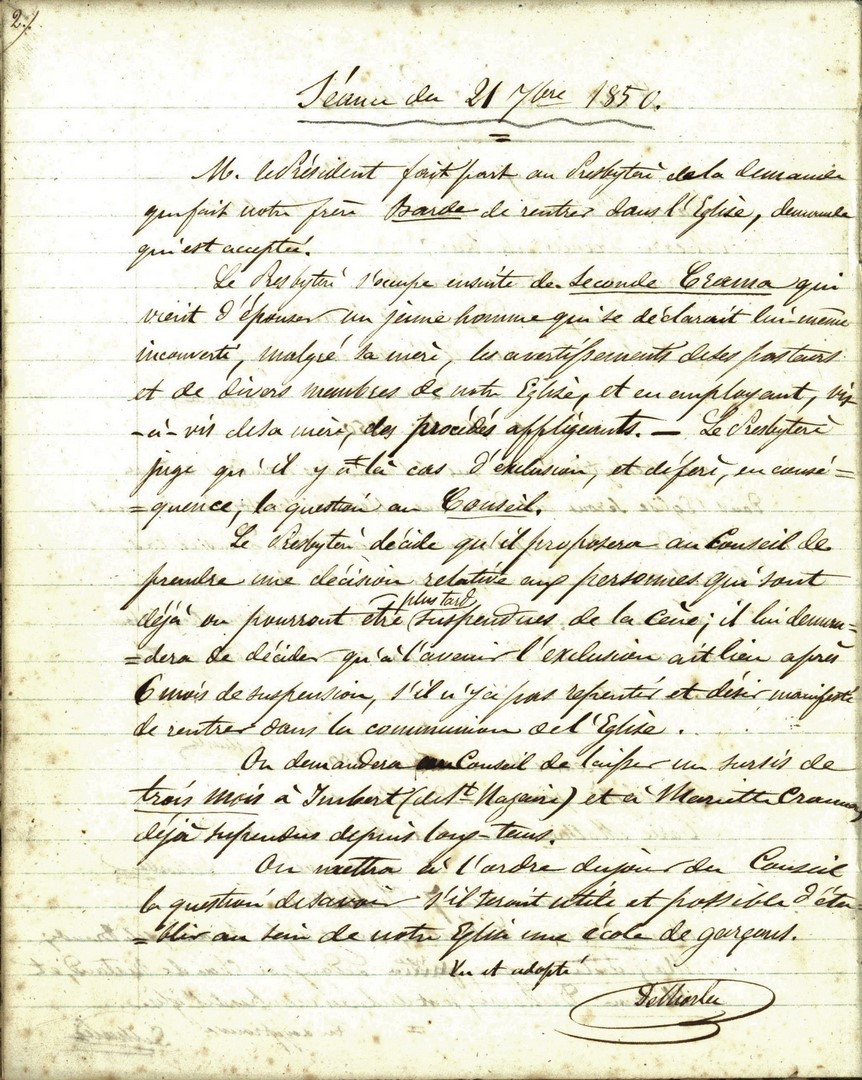 2/.
Séance du 21 7bre 1850.
M. le Président fait part au Presbytère de la demande
que fait notre frère Barde de rentrer dans l'Eglise, demande
qui est acceptée.
Le Presbytère s'occupe ensuite de Seconde Crama qui
vient d'épouser un jeune homme qui se déclarait lui-même
inconverti, malgré sa mère, les avertissements de ses pasteurs
et de divers membres de notre Eglise, et en employant, vis-
-à-vis de sa mère, des procédés affligeants. — Le Presbytère
juge qu'il y a là cas d'exclusion, et défère, en consé=
=quence, la question au Conseil.
Le Presbytère décide qu'il proposera au Conseil de
prendre une décision relative aux personnes qui sont
déjà ou pourront être plus tard suspendues de la cène; il lui deman=
=dera de décider qu'à l'avenir l'exclusion ait lieu après
6 mois de suspension, s'il n'y a pas repentir et désir manifesté
de rentrer dans la communion de l'Eglise.
On demandera au Conseil de laisser un sursis de
trois mois à Imbert (de St Nazaire) et à Mariette Crama,
déjà suspendus depuis long-tems.
On mettra à l'ordre du jour du Conseil
la question de savoir s'il serait utile et possible d'éta=
=blir au sein de notre Eglise une école de garçons.
Vu et adopté